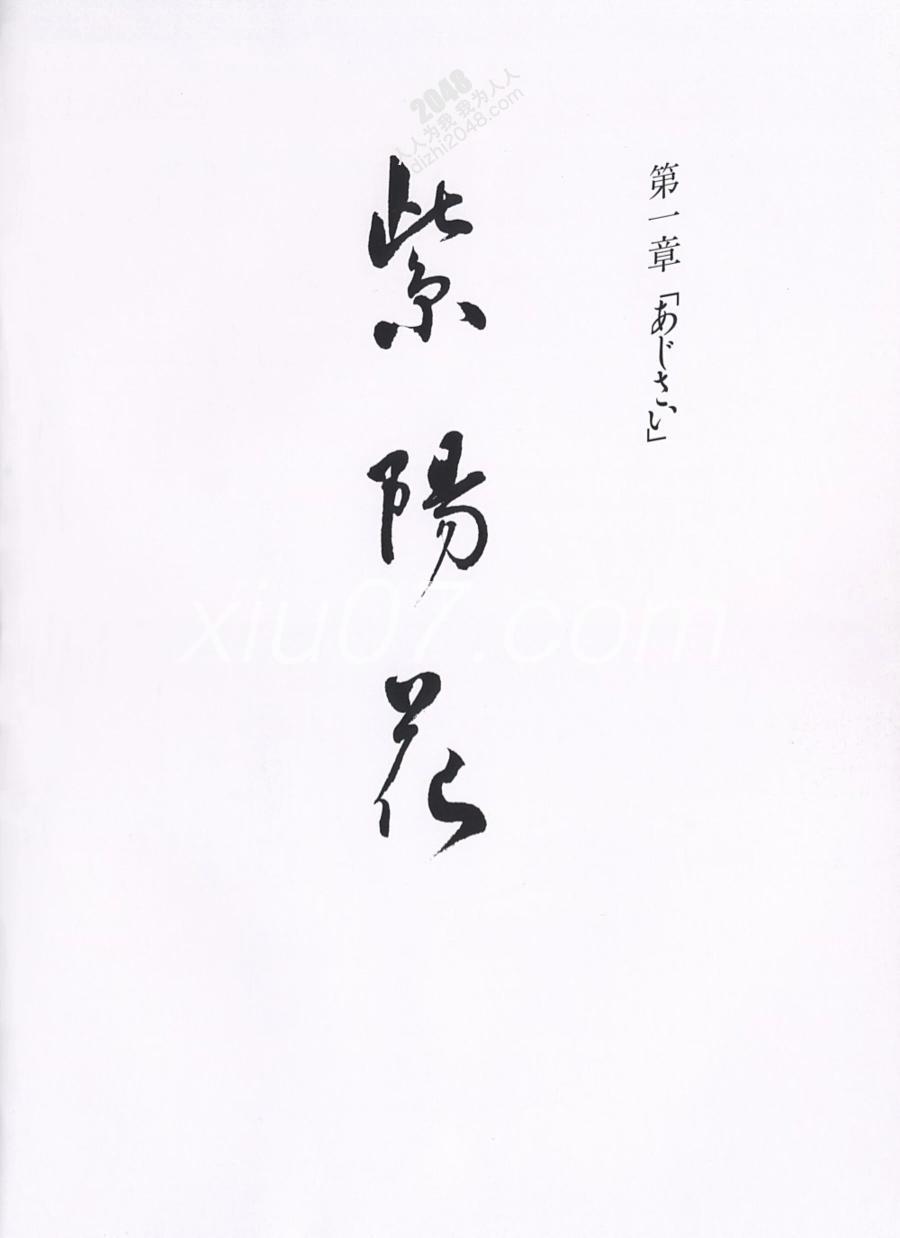 第一章「あじさい」
紫陽花
2048
人人为我 我为人人
dizhi2048.com
xiu07.com